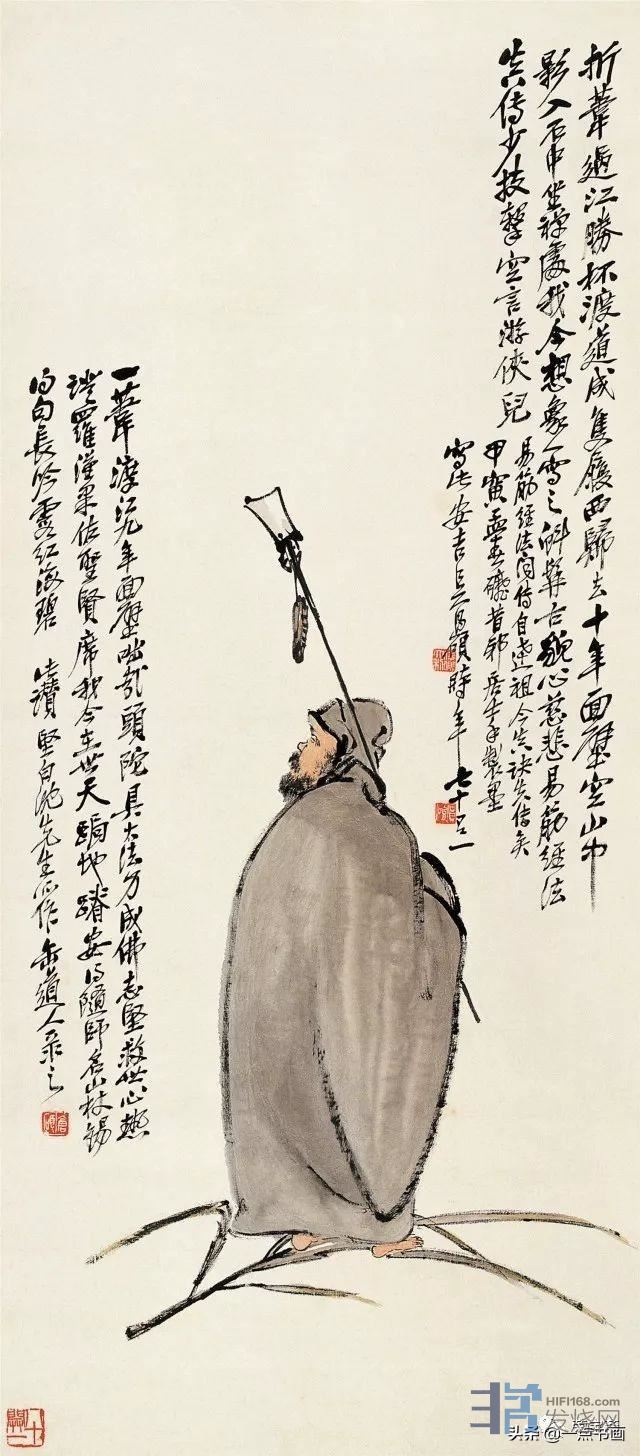 折葦過江勝杯渡道成隻履西歸去十年面壁空山中
影入石中坐禪處我今想象一寫之鬅鬙古貌心慈悲易筋經法
失傳少技擊空言游俠兒
易筋經法間傳自達祖今失訣失傳矣
甲寅孟春昔邪居士手製墨
寫此安吉吳昌碩時年七十一
一葦渡江九年面壁咄哉頭陀具大法力成佛志堅救世心熱
證羅漢果佐聖賢席我今在世天跼地蹐安得隨師名山杖錫
句長吟霞紅海碧 讚堅白先生作 缶道人录之
HIFI168.com
发烧网
头条@一点书画